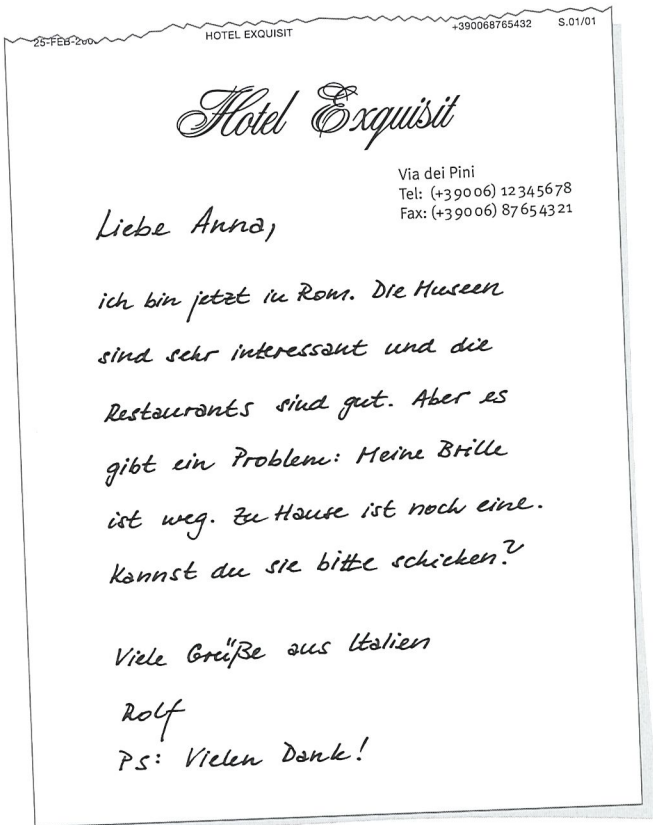 25-FEB-200
HOTEL EXQUISIT
+390068765432
S.01/01
Hotel Exquisit
Via dei Pini
Tel: (+39006) 12345678
Fax: (+39006) 87654321
Liebe Anna,
ich bin jetzt in Rom. Die Museen
sind sehr interessant und die
Restaurants sind gut. Aber es
gibt ein Problem: Meine Brille
ist weg. Zu Hause ist noch eine.
Kannst du sie bitte schicken?
Viele Grüße aus Italien
Rolf
PS: Vielen Dank!